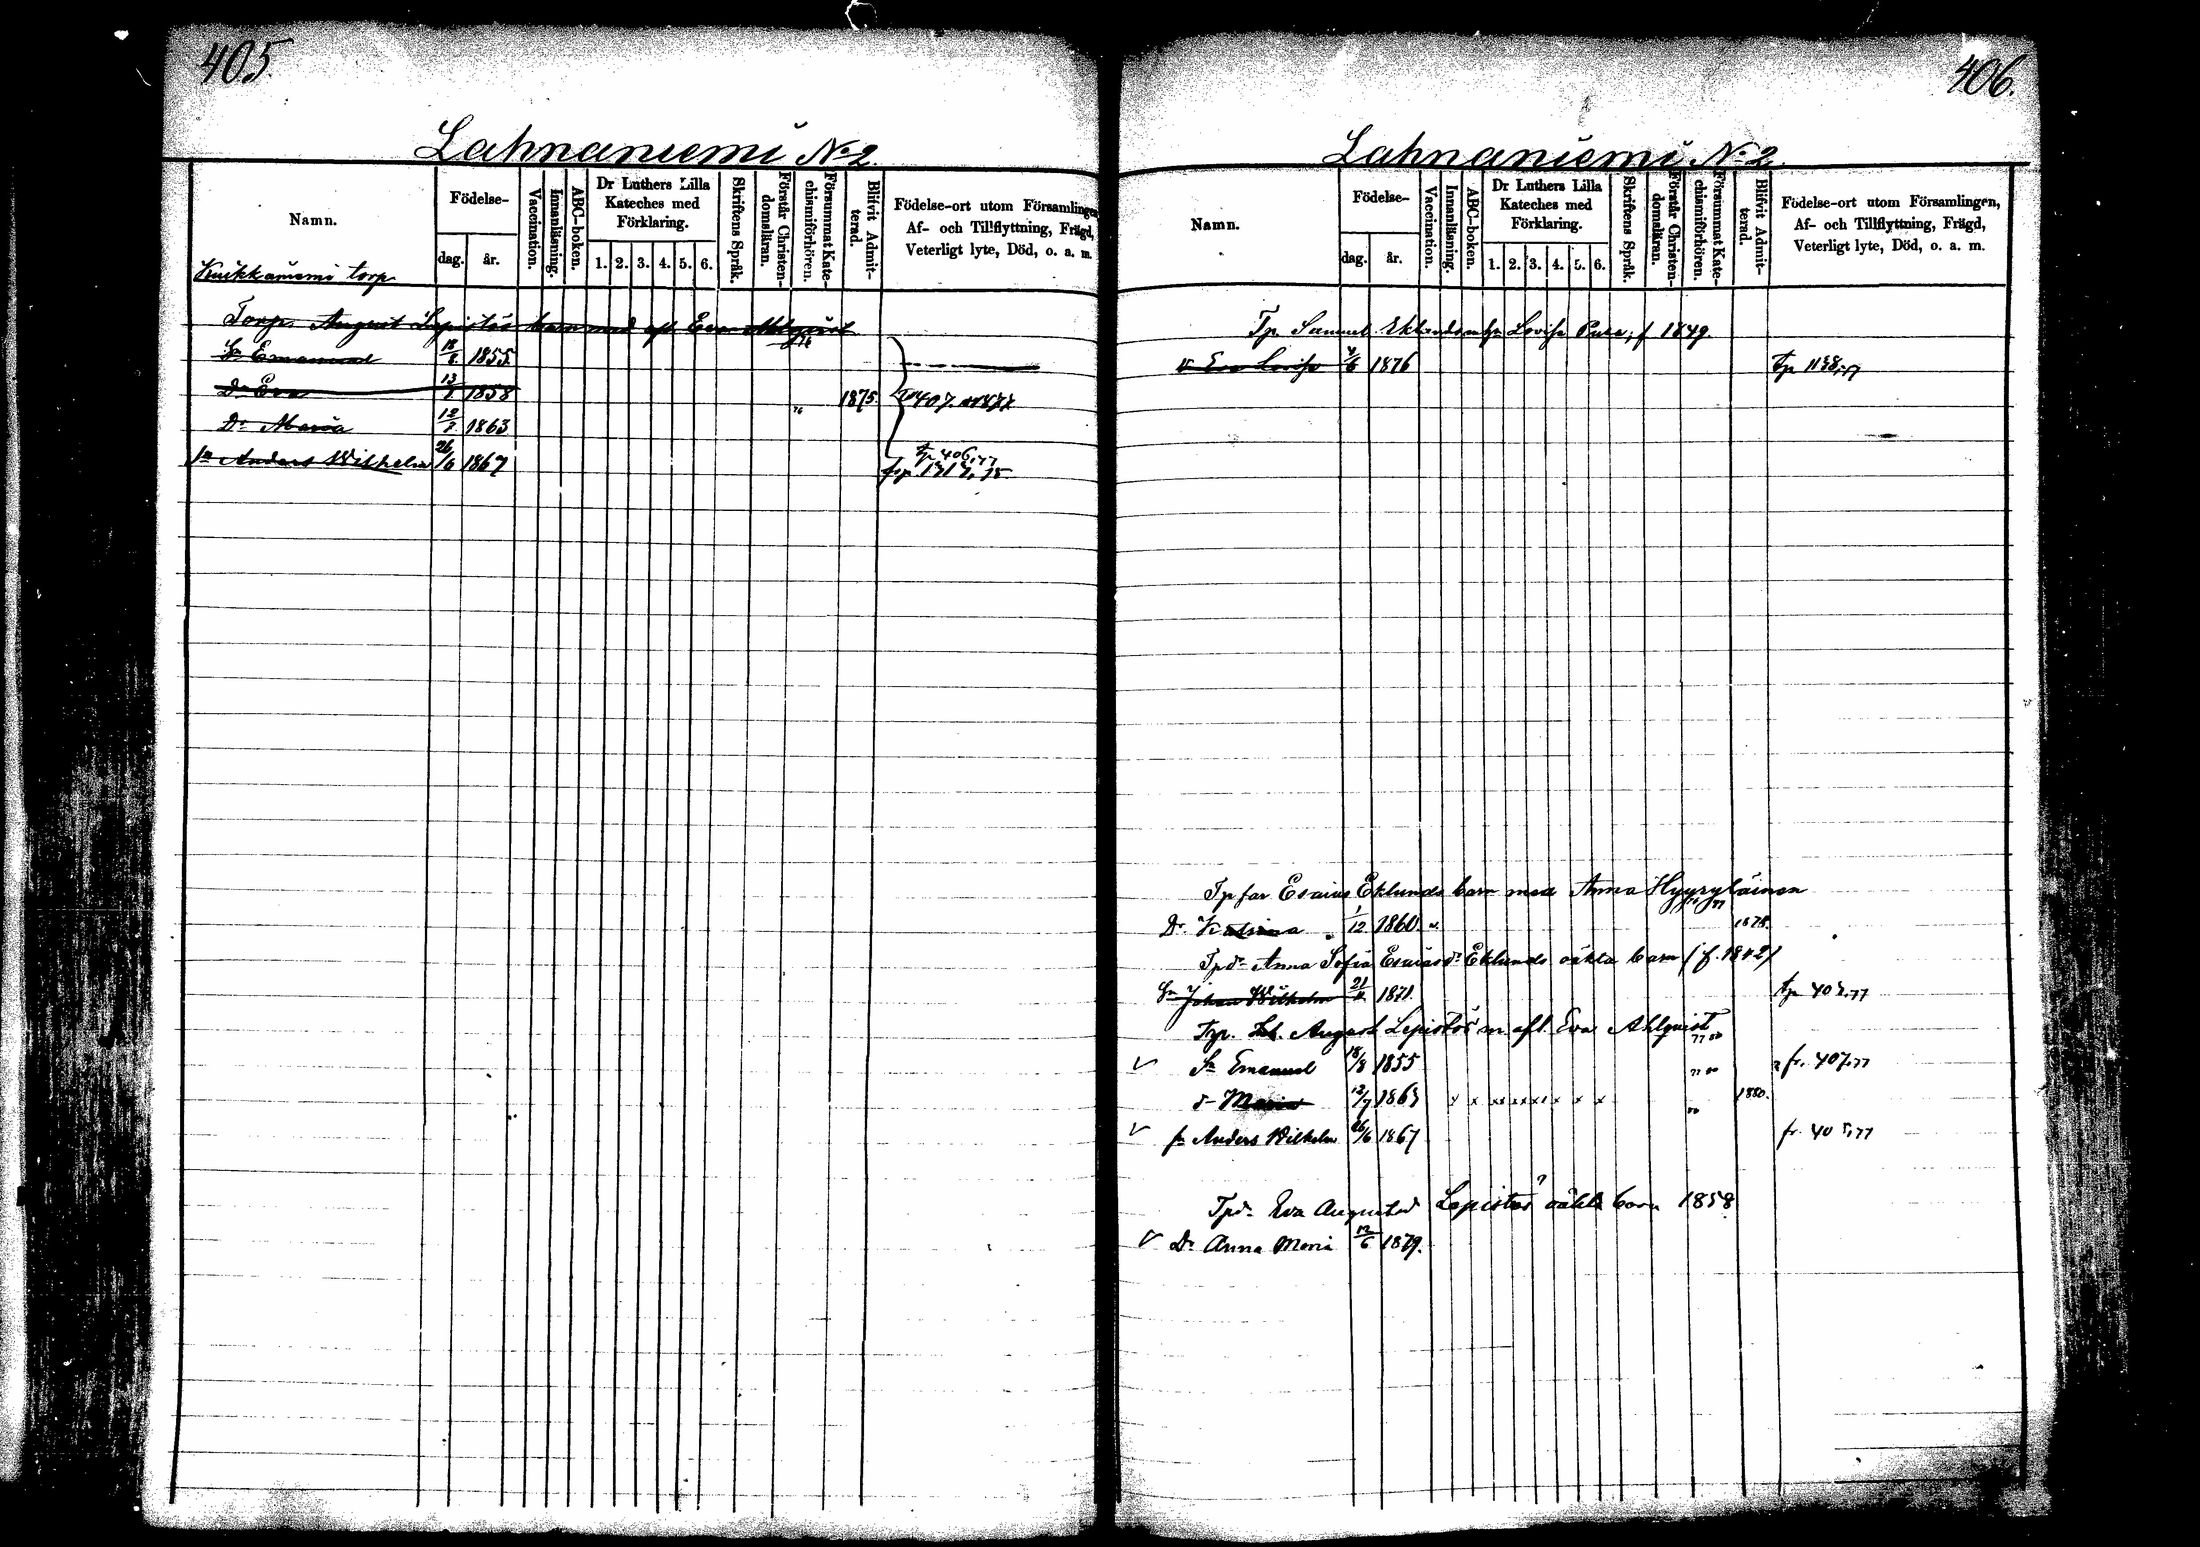 405.
Lahnaniemi No 2.
Namn.
Födelse-
dag.
år.
Vaccination.
Innanläsning.
ABC-boken.
Dr Luthers Lilla Kateches med Förklaring.
1. 2. 3. 4. 5. 6.
Skriftens Språk.
Förstår Christendomsläran.
Försummat Katechismiförhören.
Blifvit Admitterad.
Födelse-ort utom Församlingen,
Af- och Tillflyttning, Frägd,
Veterligt lyte, Död, o. a. m.
torp
Torp. August Lepistös barn med afl Eva Ahlqvist
Sn Emanuel 18/8 1855
Dr Eva 13/ 1858 76 1875
Dr Maria 12/7 1863
sn Anders Wilhelm 26/6 1867 tp 406,77
406.
Lahnaniemi No 2.
Namn.
Födelse-
dag.
år.
Vaccination.
Innanläsning.
ABC-boken.
Dr Luthers Lilla Kateches med Förklaring.
1. 2. 3. 4. 5. 6.
Skriftens Språk.
Förstår Christendomsläran.
Försummat Katechismiförhören.
Blifvit Admitterad.
Födelse-ort utom Församlingen,
Af- och Tillflyttning, Frägd,
Veterligt lyte, Död, o. a. m.
Tp Samuel Eklunds Lovisa f 1849.
Eva Lovisa /6 1876
Tp far Esaias Eklunds barn med Anna Hyyryläinen
Dr 1/12 1860 1878.
Tpdr Anna Sofia Esaiasdr Eklunds oäkta barn (f. 1842)
Sn Johan Wilhelm 21/11 1871
Tp. August Lepistös m. afl. Eva Ahlqvist
√ Sn Emanuel 18/8 1855 77 80 fr. 407,77
d- Maria 12/7 1863 x x xx xx xx x x x 80 1880.
√ sn Anders Wilhelm 26/6 1867 fr. 405,77
Tpdr Eva Augustsd Lepistös oäkta barn 1858
√ Dr Anna Maria 12/6 1879.